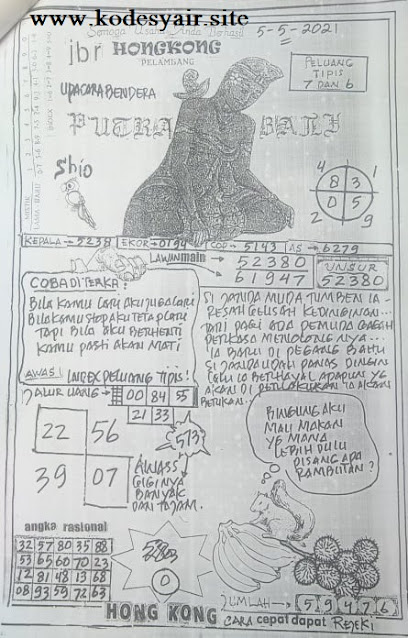 www.kodesyair.site
Semoga Usaha Anda Berhasil
5-5-2021
jbr HONGKONG
PELAMBANG
PELUANG
TIPIS
7 DAN 6
UPACARA BENDERA
PUTRA BALI
Shio
8 3
0 5
4 1
2 9
KEPALA → 5238 EKOR → 0194 COP → 5143 AS → 6279
LAWAN main
52380
61947
UNSUR
52380
COBA DI TERKA:
BILA KAMU LARI AKU JUGA LARI
BILA KAMU STOP AKU TETAP LARI
TAPI BILA AKU BERHENTI
KAMU PASTI AKAN MATI
SI JANDA MUDA TUMBEN IA
RESAH GELISAH KEDINGINAN...
TAPI PAGI ADA PEMUDA GAGAH
PERKASA MENOLONG NYA...
IA BARU DI PEGANG BAHU
SI JANDA UDAH PANAS DINGIN
AKAN DI PERLAKUKAN IA AKAN
AWAS! INDEX PELUANG TIPIS!
JALUR UANG: 00 84 55
21 33
22 56
39 07
513
AWASS
GIGINYA
BANYAK
DAN TAJAM.
BINGUNG AKU
MAU MAKAN
YG MANA
LEBIH DULU
DISANG APA
RAMBUTAN?
angka rasional
32 57 80 35 88
53 65 60 70 23
12 81 48 13 68
08 93 59 72 63
0
HONG KONG
JUMLAH → 5 9 4 7 6
CARA cepat dapat REJEKI